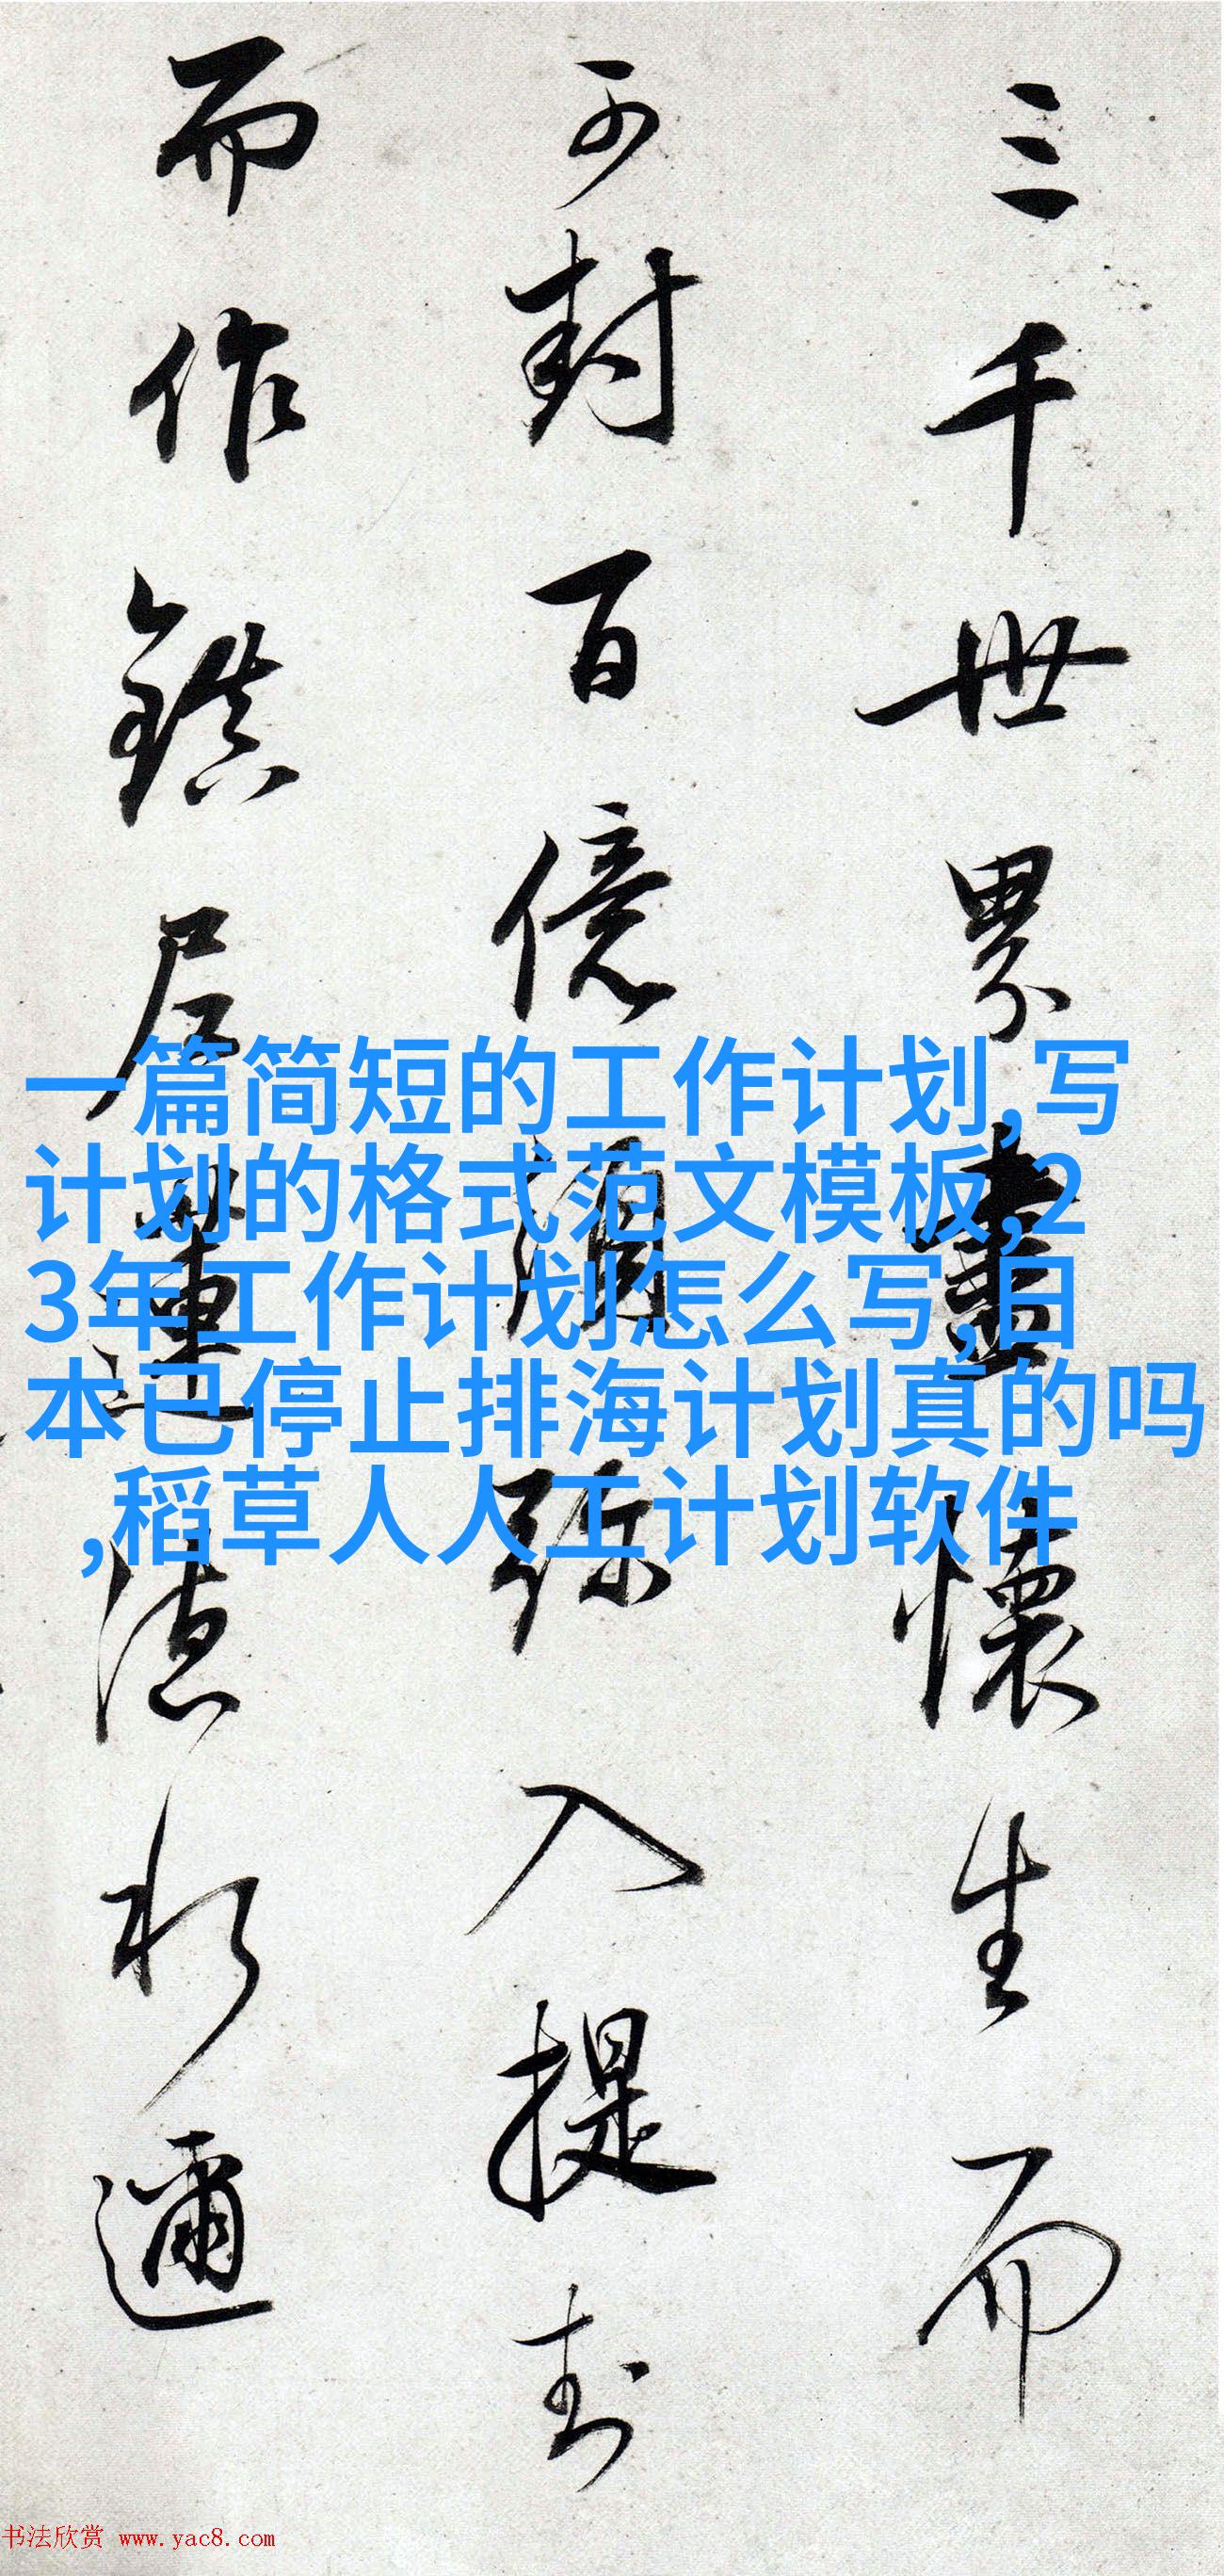 三千世界盡懷生而
可封百億須弥入提封
而作鎮居
邇
一篇简短的工作计划,写
计划的格式范文模板,2
3年工作计划怎么写,日
本已停止排海计划真的吗
,稻草人人工计划软件
书法欣赏 www.yac8.com